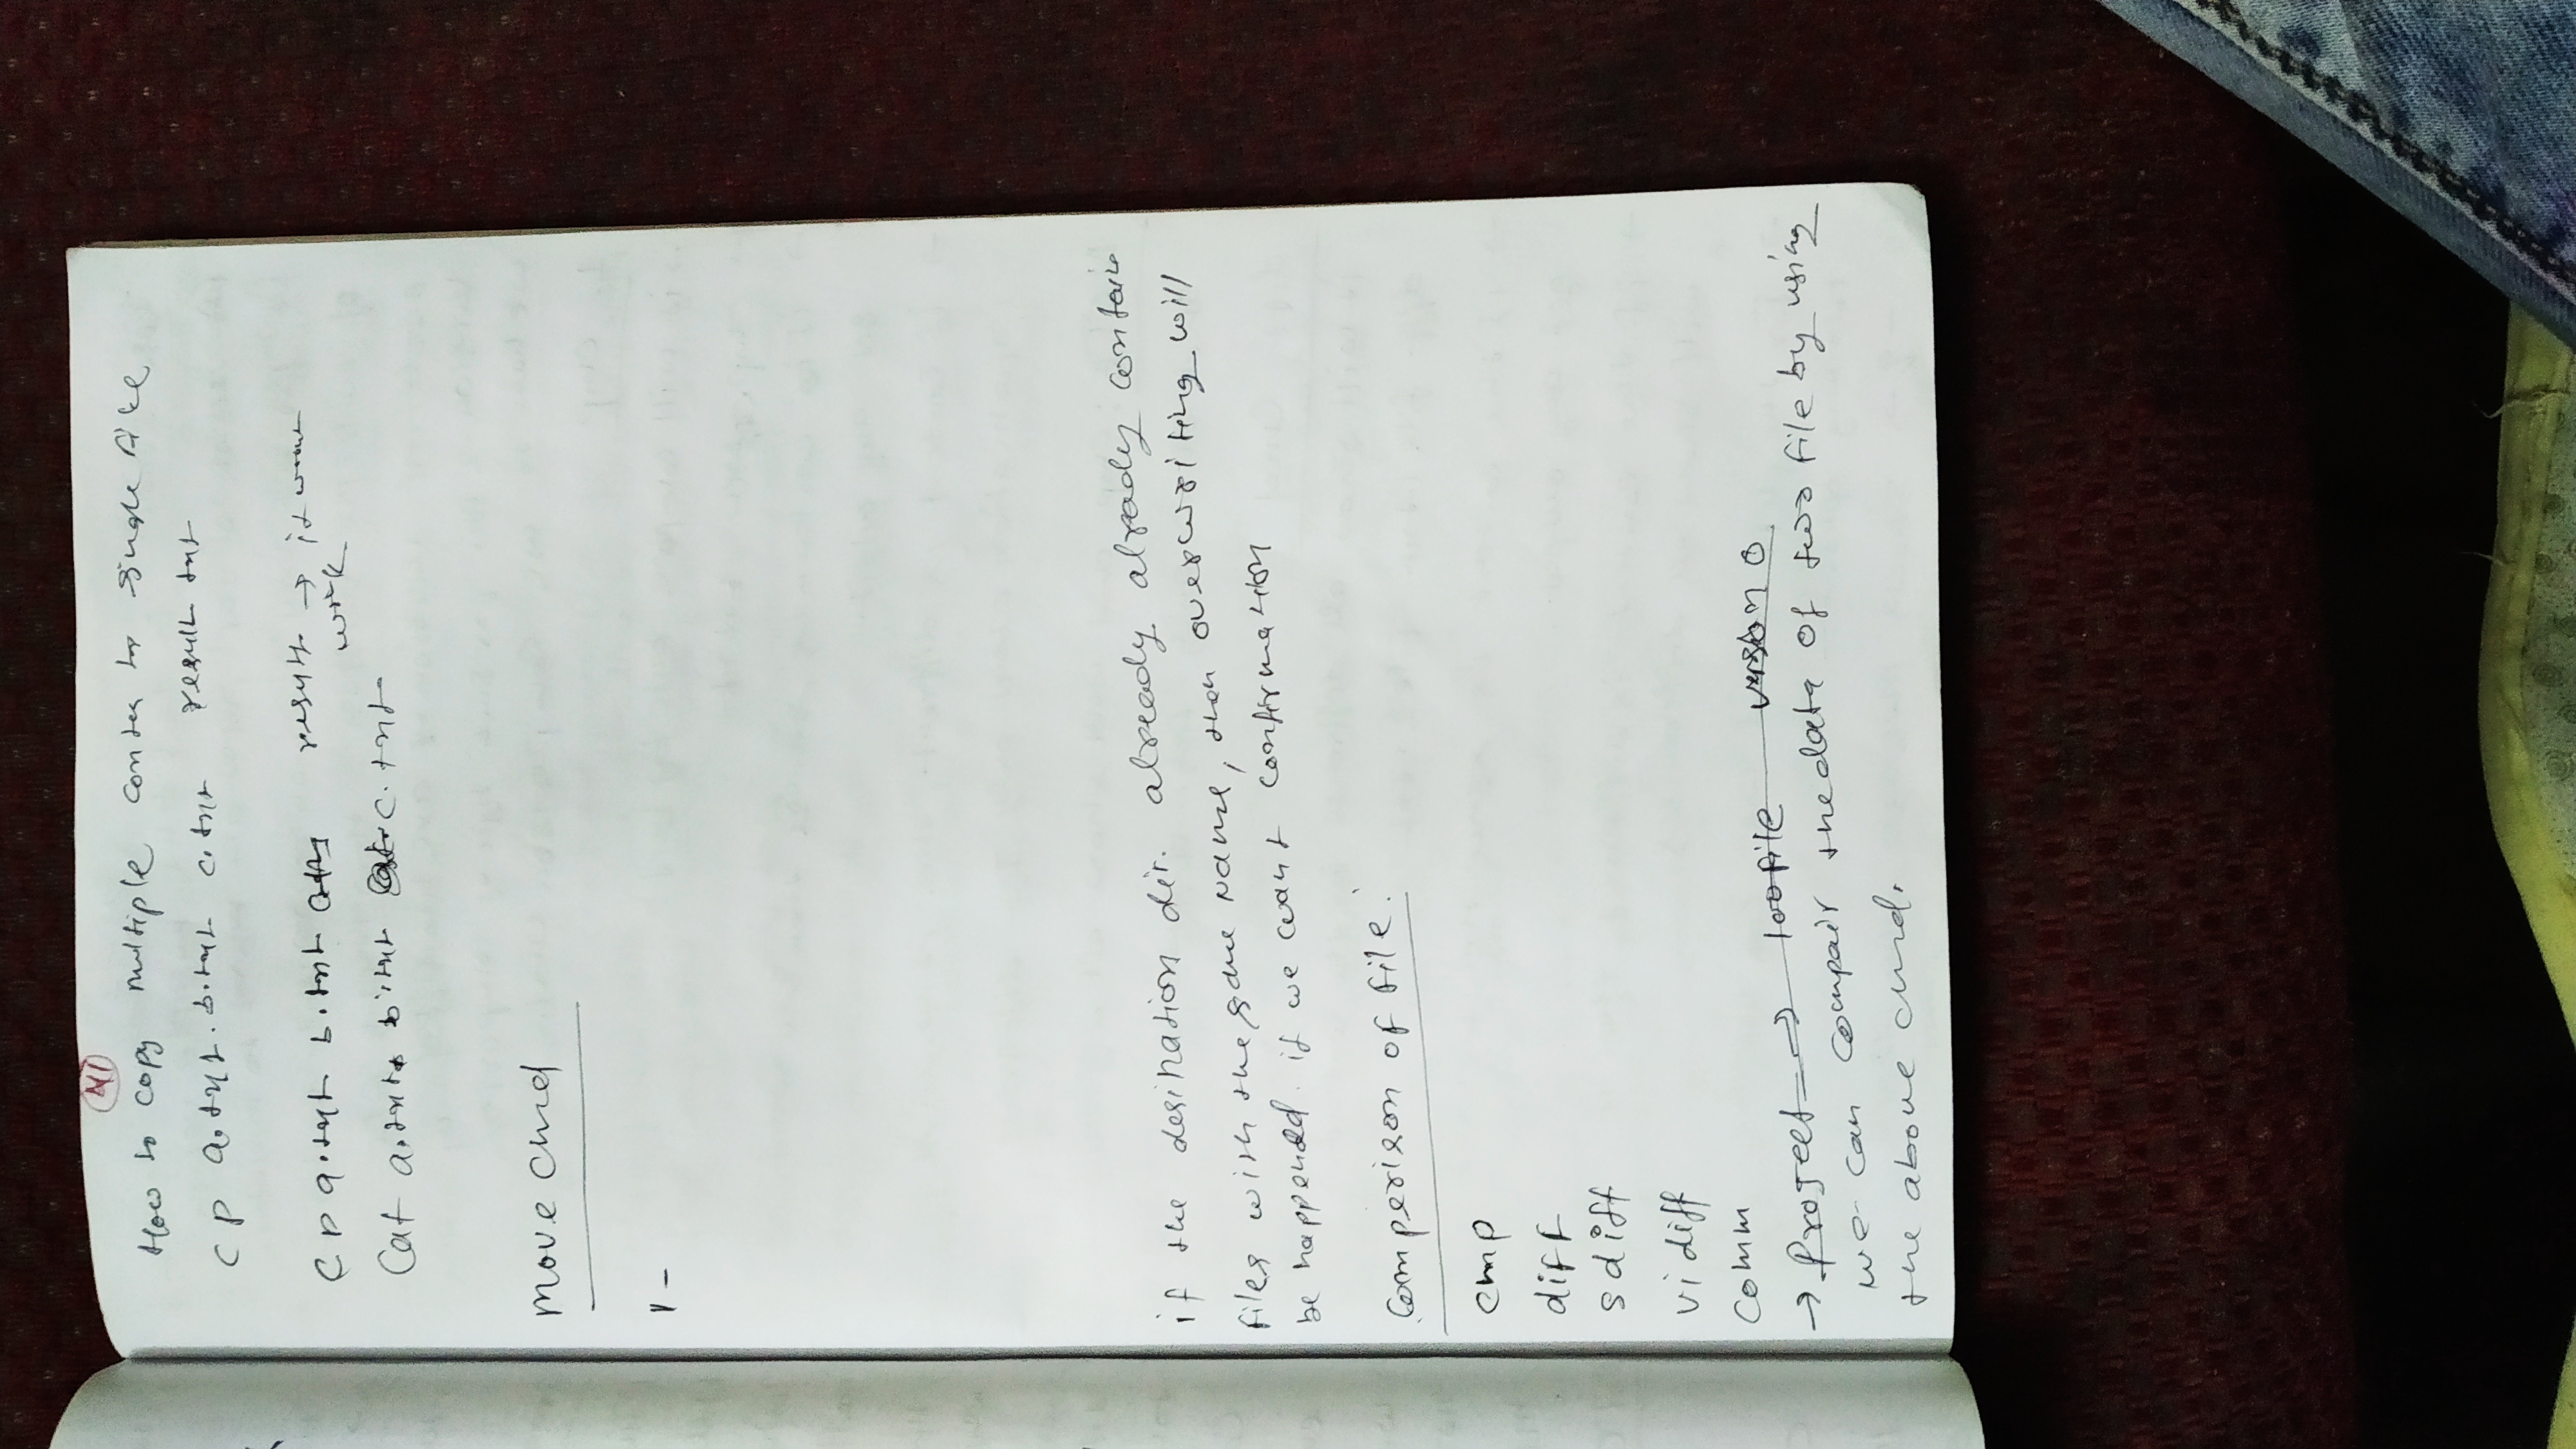 41
How to copy multiple to single file
cp a.txt. b.txt c.txt result txt
cp a.txt b.txt result → it wont
work
Cat a.txt b.txt c.txt
move cmd
1 -
if the desination dir. already already contain
files with the same name, then overwriting will
be happended. if we want confirmation
Comperison of file:
cmp
diff
sdiff
vidiff
comm
→ Project ⇒ 100 file version 0
we can compair the data of two file by using
the above cmd.